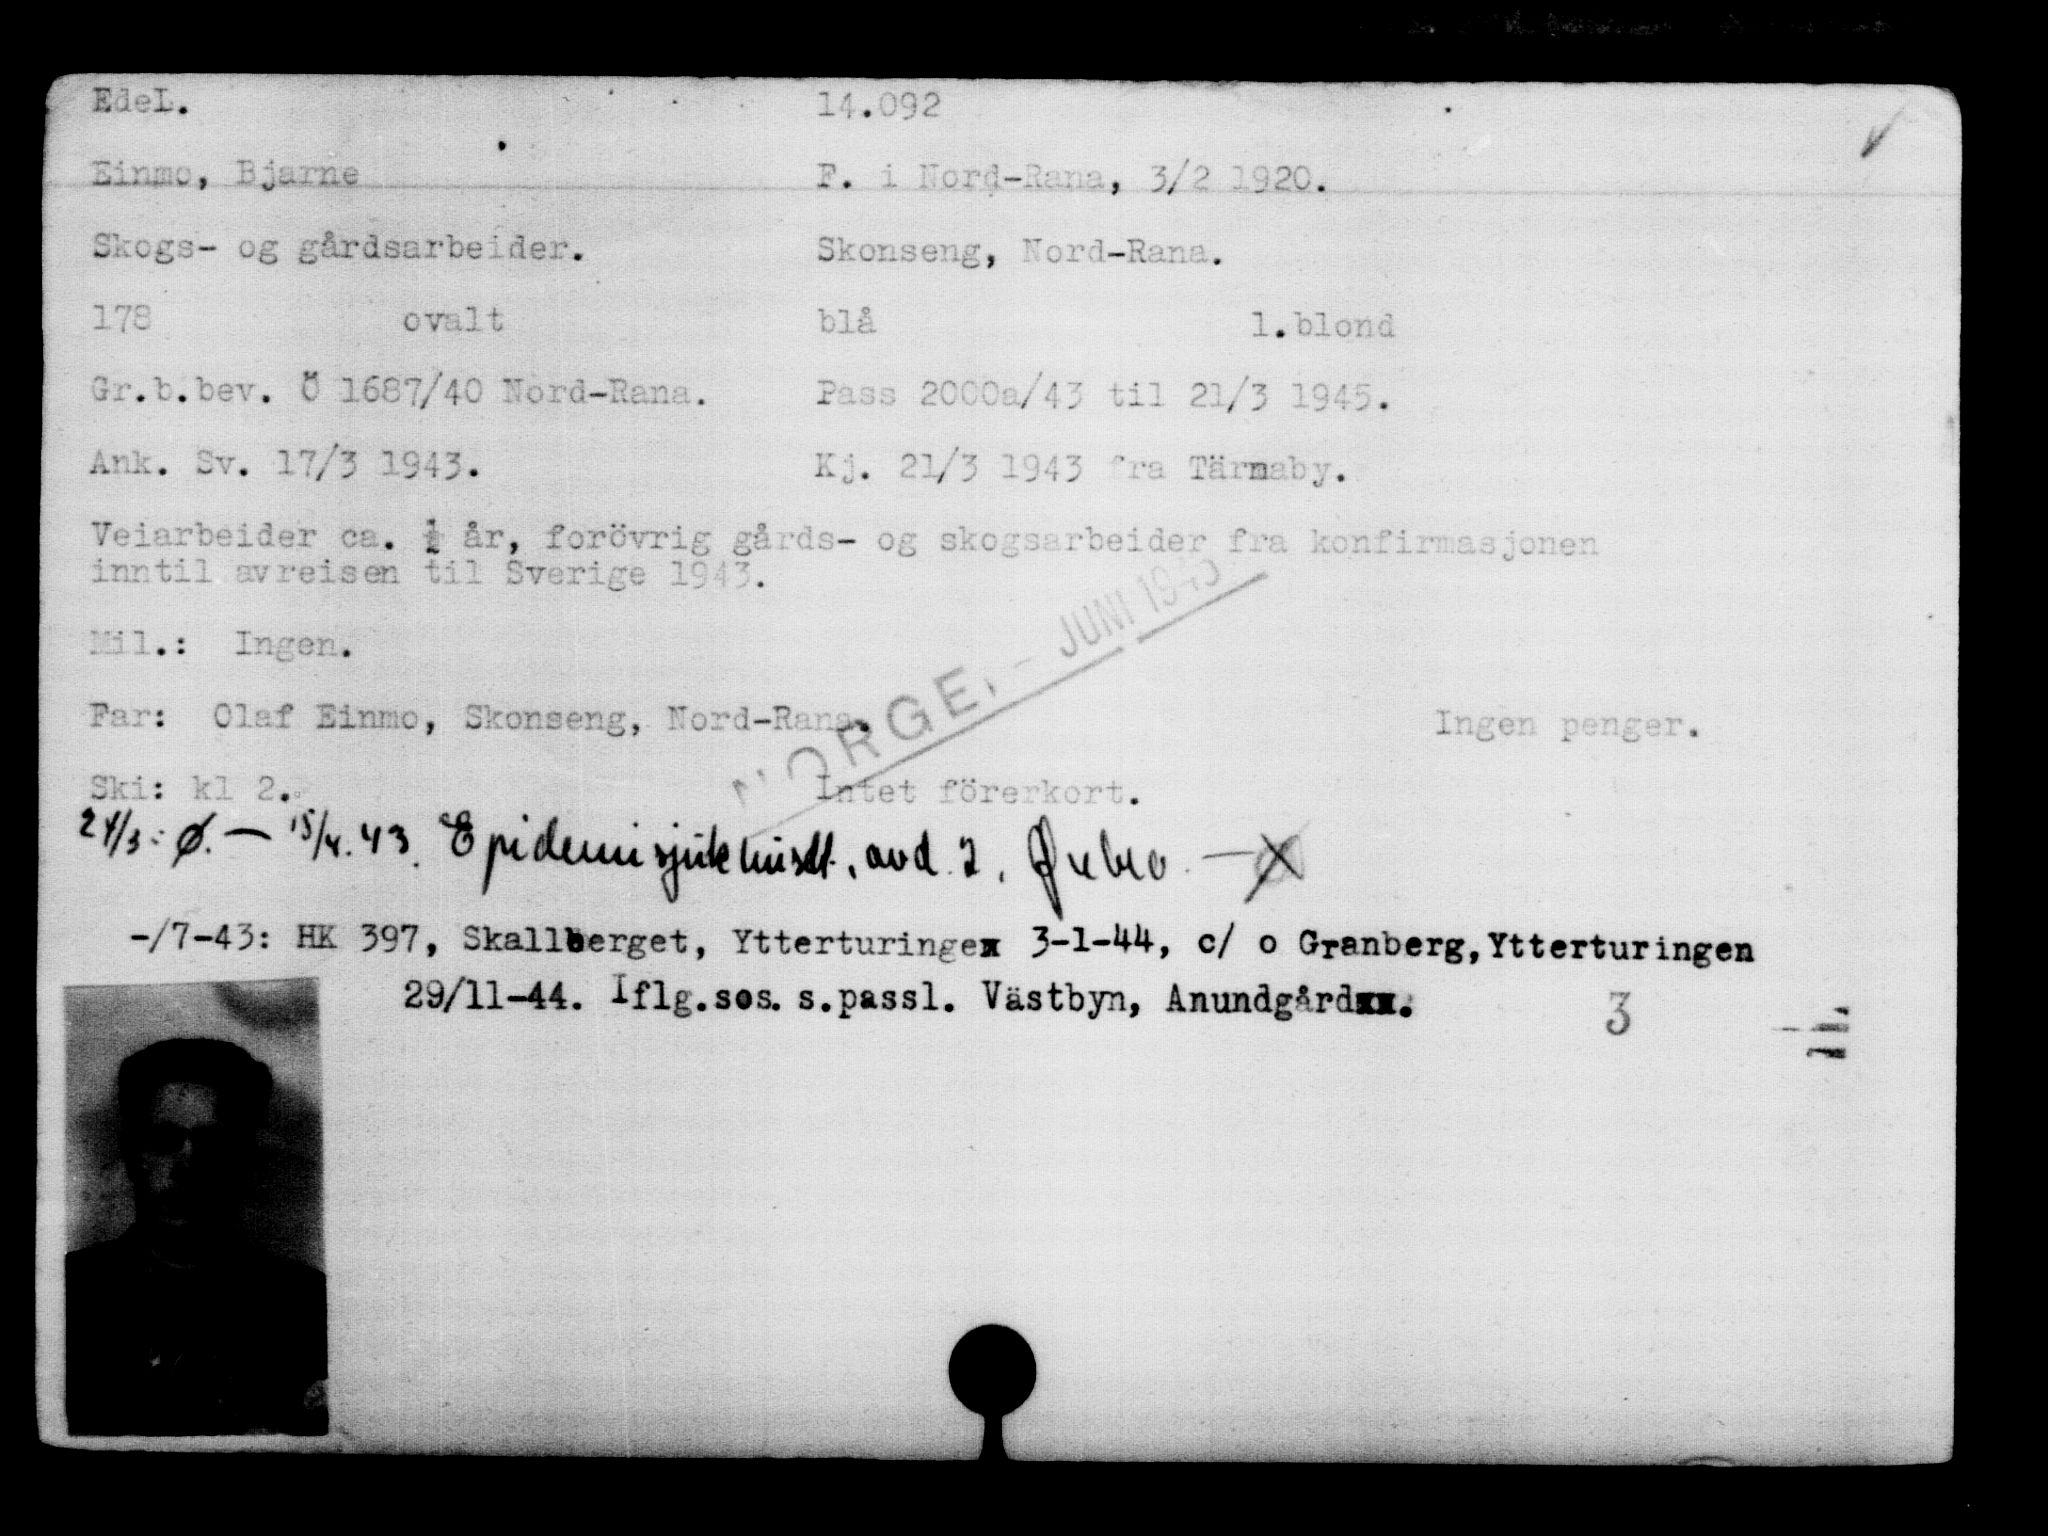 EdeL. 14.092
Einmo, Bjarne F. i Nord-Rana, 3/2 1920.
Skogs- og gårdsarbeider. Skonseng, Nord-Rana.
178 ovalt blå l.blond
Gr.b.bev. Ö 1687/40 Nord-Rana. Pass 2000a/43 til 21/3 1945.
Ank. Sv. 17/3 1943. Kj. 21/3 1943 fra Tärnaby.
Veiarbeider ca. ½ år, forövrig gårds- og skogsarbeider fra konfirmasjonen
inntil avreisen til Sverige 1943.
Mil.: Ingen.
NORGE, - JUNI 1945
Far: Olaf Einmo, Skonseng, Nord-Rana. Ingen penger.
Ski: kl 2. Intet förerkort.
24/3: Ø. — 15/4.43. Epidemisjukhuset, avd. 2, Ørebro —
-/7-43: HK 397, Skallberget, Ytterturingex 3-1-44, c/ o Granberg, Ytterturingen
29/11-44. Iflg.sos. s.passl. Västbyn, Anundgårdxx.
3